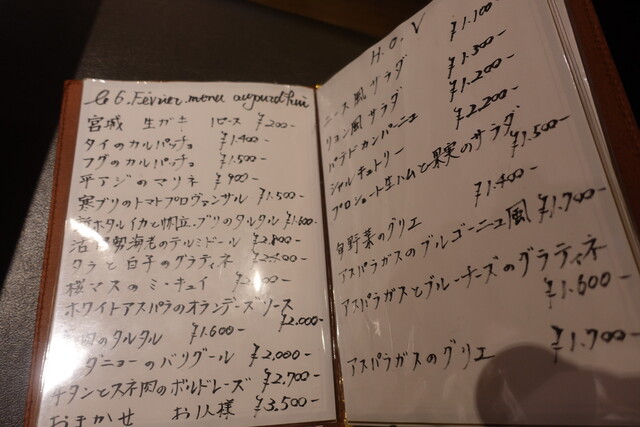 le 6. Février menu aujourd'hui
宮城 生ガキ 1ピース ¥200-
タイのカルパッチョ ¥1.400-
フグのカルパッチョ ¥1.500-
平アジのマリネ ¥900-
寒ブリのトマトプロヴァンサル ¥1.500-
ホタルイカと帆立、ブリのタルタル ¥1.600-
活伊勢海老のテルミドール ¥2.800-
タラと白子のグラティネ
桜マスのミ・キュイ
ホワイトアスパラのオランデーズソース ¥2.000-
肉のタルタル ¥1.600-
ダニョーのバリグール ¥2.000-
牛タンとスネ肉のボルドレーズ ¥2.700-
おまかせ お1人様 ¥3.500-
H.O.V
ニース風サラダ ¥1.100-
リヨン風サラダ ¥1.300-
パテドカンパーニュ ¥1.200-
シャルキュトリー ¥2.200-
プロシュート生ハムと果実のサラダ ¥1.500-
旬野菜のグリエ ¥1.400-
アスパラガスのブルゴーニュ風 ¥1.700-
アスパラガスとブルーチーズのグラティネ ¥1.600-
アスパラガスのグリエ ¥1.700-